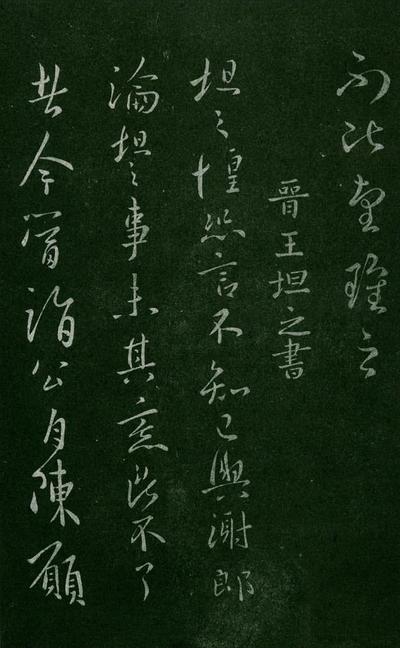 不
晉王坦之書
坦之惶恐言不知已與謝郎
論坦之事未其意不了
今當詣公自陳願